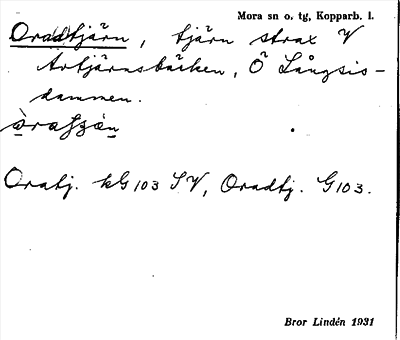 Mora sn o. tg, Kopparb. l.
Oradtjärn, tjärn strax V
Artjärnsbäcken, Ö Långsis-
dammen.
Oratj. kG 103 SV, Oradtj. G 103.
Bror Lindén 1931